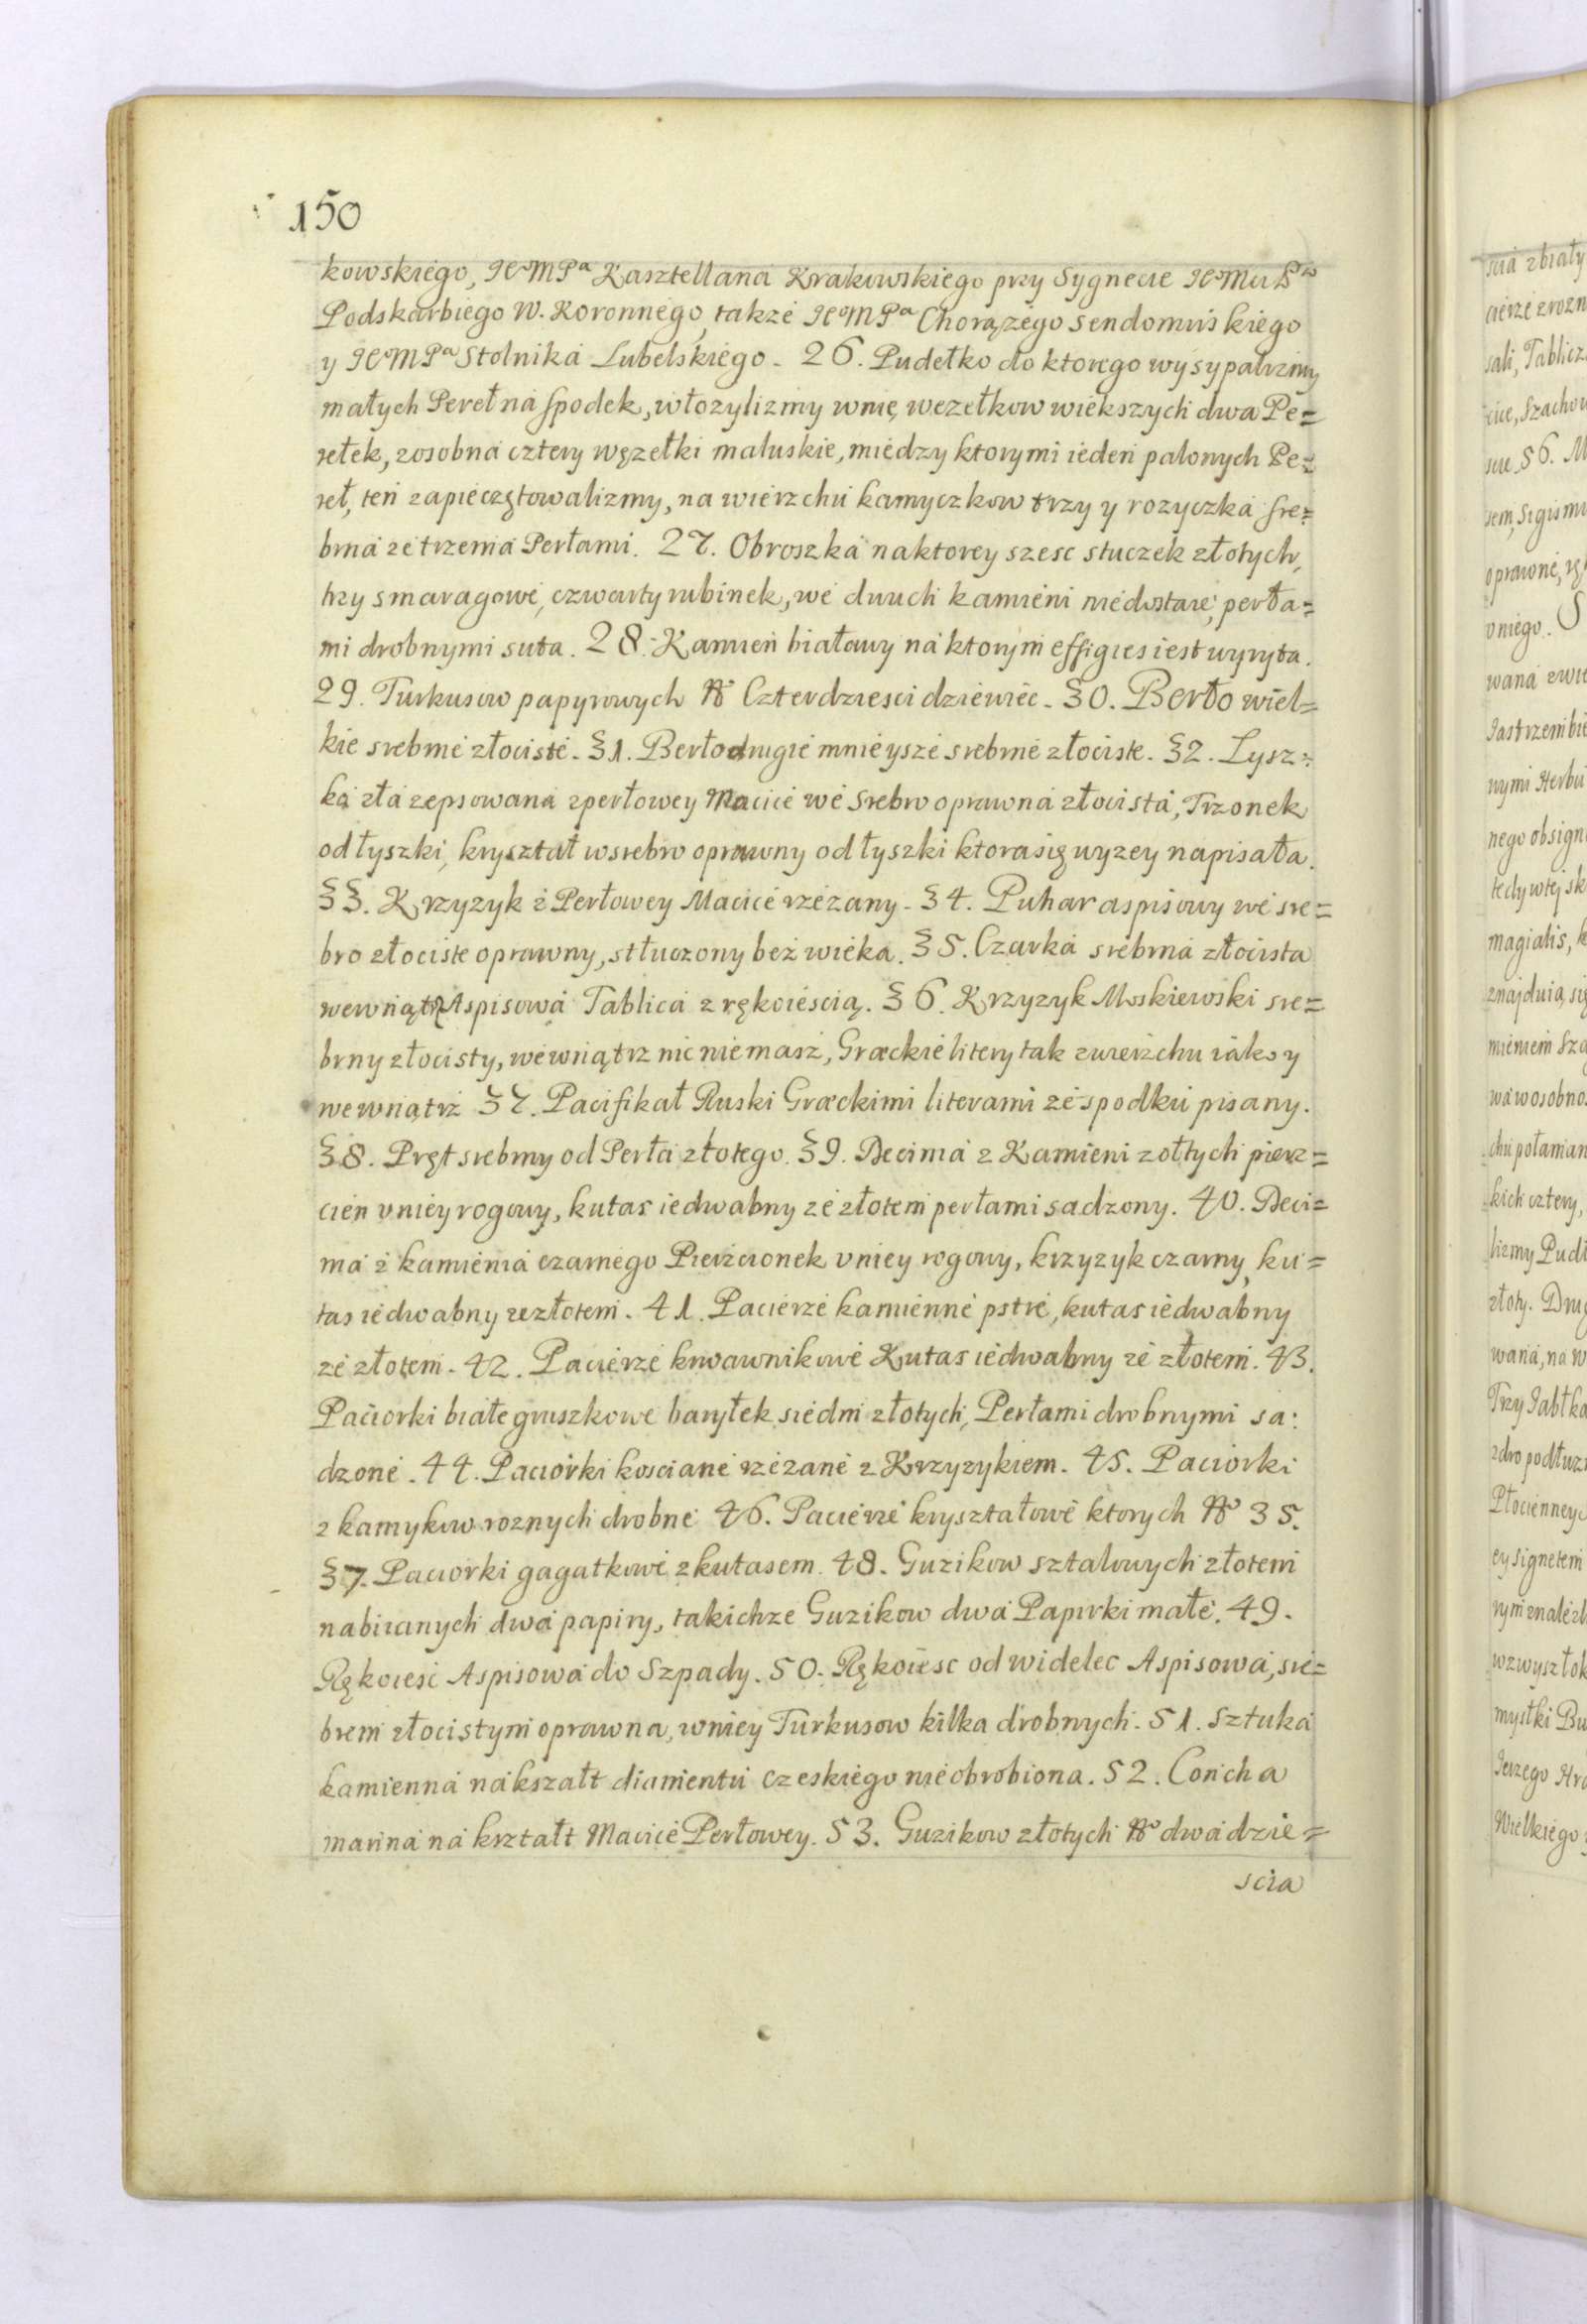 150
kowskiego, JEoMPa Kasztellana Krakowskiego przy Sygnecie JEoMci Pa
Podskarbiego W. Koronnego, takze JEoMPa Chorązego Sendomirskiego
y JEoMPa Stolnika Lubelskiego. 26. Pudełko do ktorego wysypalizmy
małych Pereł na spodek, włozylizmy wnie, wezełkow wiekszych dwa Pe=
rełek, zosobna cztery węzełki maluskie, miedzy ktorymi ieden palonych Pe=
reł, ten zapieczętowalizmy, na wierzchu kamyczkow trzy y rozyczka sre=
brna ze trzema Perłami. 27. Obroszka naktorey szesc stuczek złotych,
trzy smaragowe, czwarty rubinek, we dwuch kamieni niedostaie, perła=
mi drobnymi suta. 28. Kamien białawy na ktorym effigies iest wyryta.
29. Turkusow papyrowych No Czterdziesci dziewiec. 30. Berło wiel=
kie srebrne złociste. 31. Berło drugie mnieysze srebrne złociste. 32. Lysz=
ka zła zepsowana zperłowey Macice we srebro oprawna złocista, Trzonek
od łyszki, kryształ wsrebro oprawny od łyszki ktora się wyzey napisała.
33. Krzyzyk z Perłowey Macice rzezany. 34. Puhar aspisowy we sre=
bro złociste oprawny, stłuczony bez wieka. 35. Czarka srebrna złocista
wewnątrz Aspisowa Tablica z rękoiescią. 36. Krzyzyk Moskiewski sre=
brny złocisty, wewnątrz nic niemasz, Græckie litery tak zwierzchu iako y
wewnątrz 37. Pacifikał Ruski Græckimi literami ze spodku pisany.
38. Pręt srebrny od Perła złotego. 39. Decima z Kamieni zołtych pierz=
cien vniey rogowy, kutas iedwabny ze złotem perłami sadzony. 40. Deci=
ma z kamienia czarnego Pierzcionek vniey rogowy, krzyzyk czarny, ku=
tas iedwabny zezłotem. 41. Pacierze kamienne pstre, kutas iedwabny
ze złotem. 42. Pacierze krwawnikowe Kutas iedwabny ze złotem. 43.
Paciorki białe gruszkowe baryłek siedm złotych, Perłami drobnymi sa:
dzone. 44. Paciorki kosciane rzezane z Krzyzykiem. 45. Paciorki
z kamykow roznych drobne 46. Pacierze kryształowe ktorych No 35.
37. Paciorki gagatkowe zkutasem. 48. Guzikow sztalowych złotem
nabiianych dwa papiry, takichze Guzikow dwa Papirki małe. 49.
Rękoiesc Aspisowa do Szpady. 50. Rękoiesc od widelec Aspisowa, sre=
brem złocistym oprawna, wniey Turkusow kilka drobnych. 51. Sztuka
kamienna nakszałt diamentu czeskiego nieobrobiona. 52. Concha
marina na kształt Macice Perłowey. 53. Guzikow złotych No dwadzie=
scia